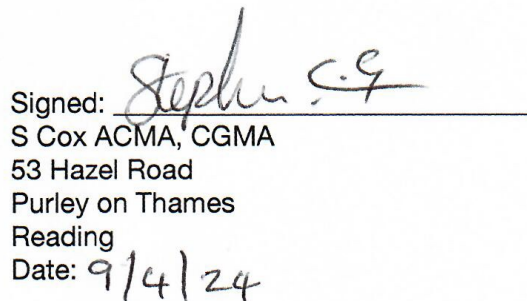 Signed: Stephen C.G
S Cox ACMA, CGMA
53 Hazel Road
Purley on Thames
Reading
Date: 9/4/24